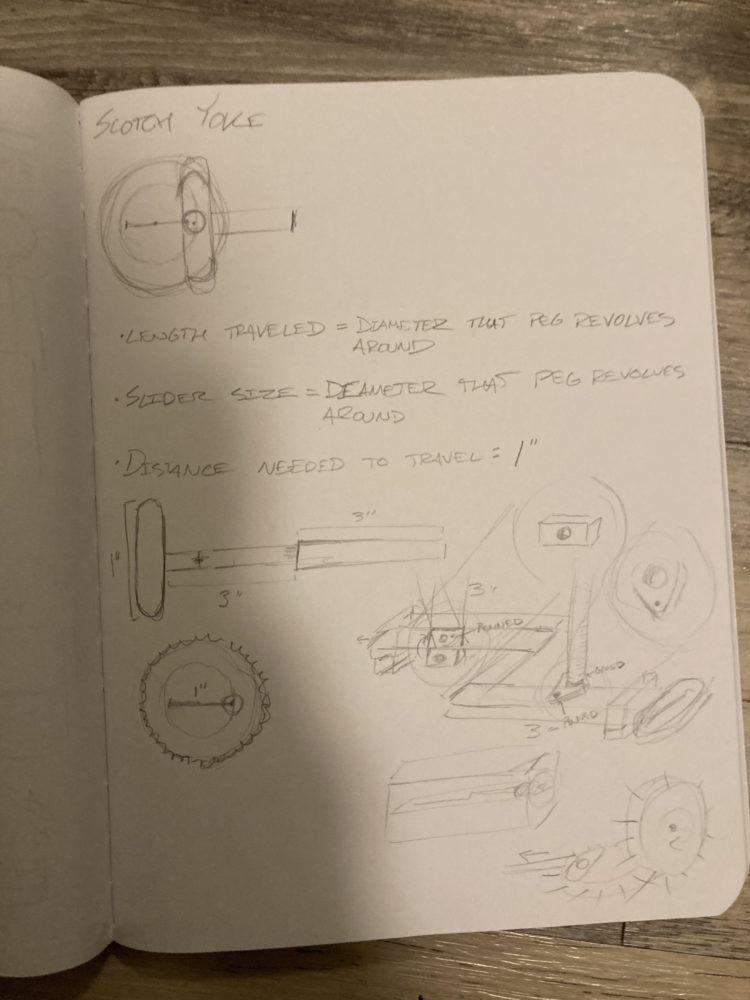 SCOTCH YOKE
•LENGTH TRAVELED = DIAMETER THAT PEG REVOLVES
AROUND
•SLIDER SIZE = DIAMETER THAT PEG REVOLVES
AROUND
•DISTANCE NEEDED TO TRAVEL = 1"
3"
1"
3"
3"
1"
3